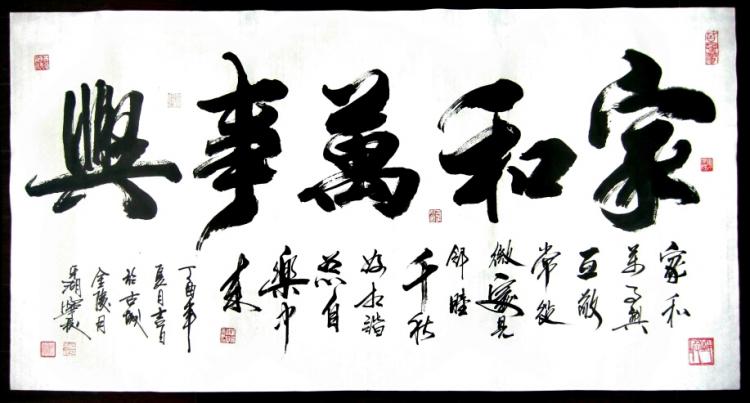 家和萬事興
家和
萬事興
互敬
常從
微處見
鄰睦
千秋
好相諧
总自
樂中
来
丁酉年
夏月吉日
於古城
金陵月
牙湖